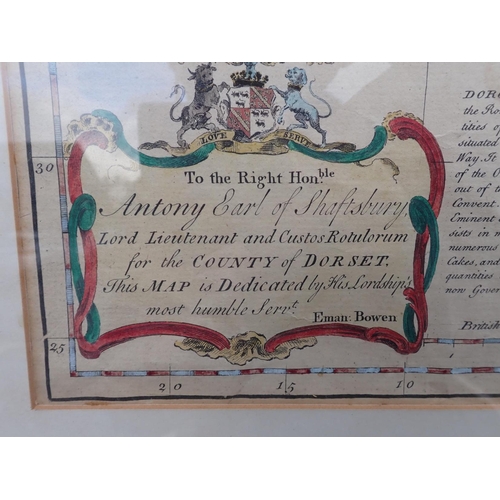 LOVE SERVE
To the Right Hon.ble
Antony Earl of Shaftsbury,
Lord Lieutenant and Custos Rotulorum
for the COUNTY of DORSET.
This MAP is Dedicated by His Lordship's
most humble Servt.
Eman: Bowen
30
25
20
15
10
DOR
the Ro
tities
situated
Way. It
of the O
out of t
Convent
Eminent
sists in m
numerous
Cakes, and
quantities
now Gover
British